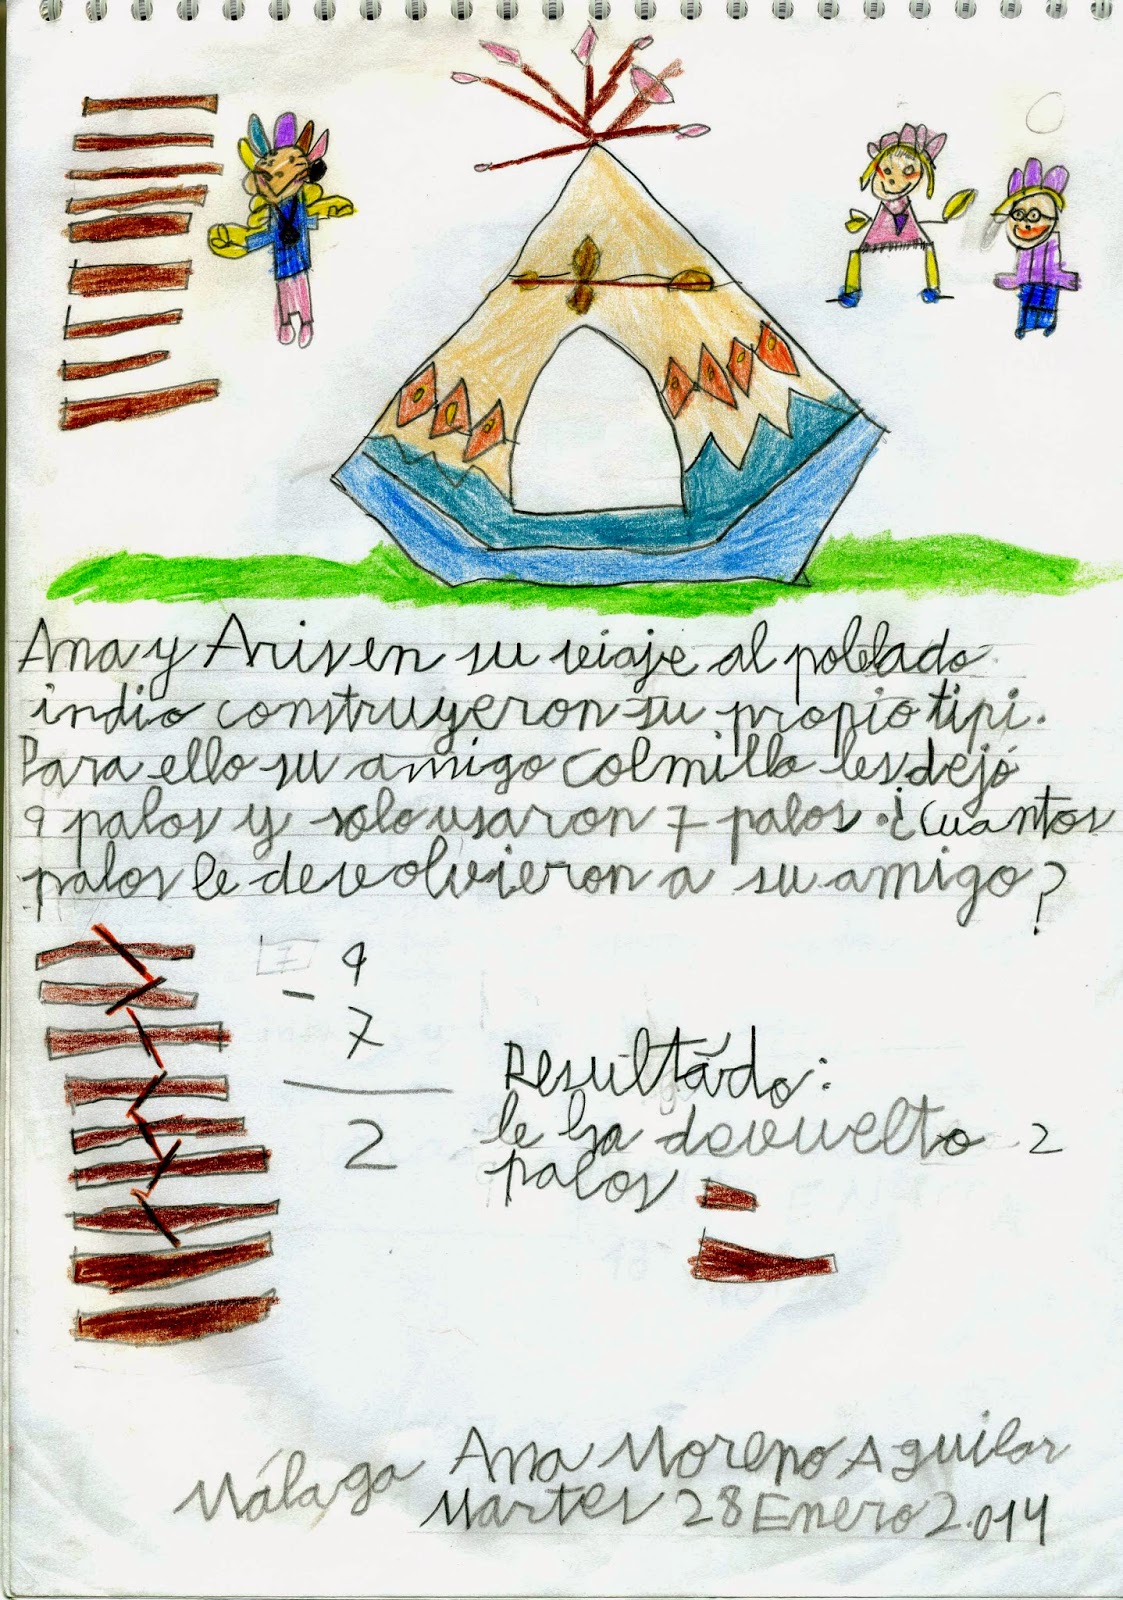 Ana y Aris en su viaje al poblado
indio construyeron su propio tipi.
Para ello su amigo Colmillo les dejó
9 palos y solo usaron 7 palos. ¿Cuantos
palos le devolvieron a su amigo?
7
9
-
7
2
Resultado:
le ha devuelto 2
palos
Ana Moreno Aguilar
Málaga Martes 28 Enero 2.014